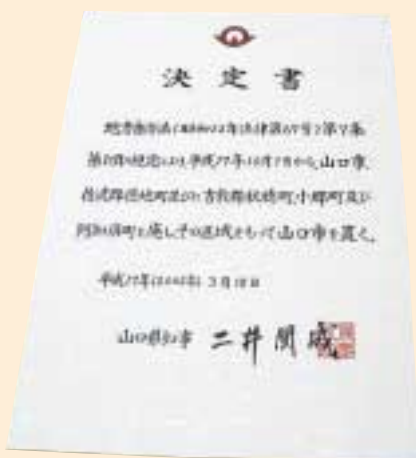 決定書
地方自治法(昭和22年法律第67号)第7条
第1項の規定により、平成17年10月1日から、山口市、
佐波郡徳地町並びに吉敷郡秋穂町、小郡町及び
阿知須町を廃し、その区域をもって山口市を置く。
平成17年(2005年)3月18日
山口県知事 二井関成